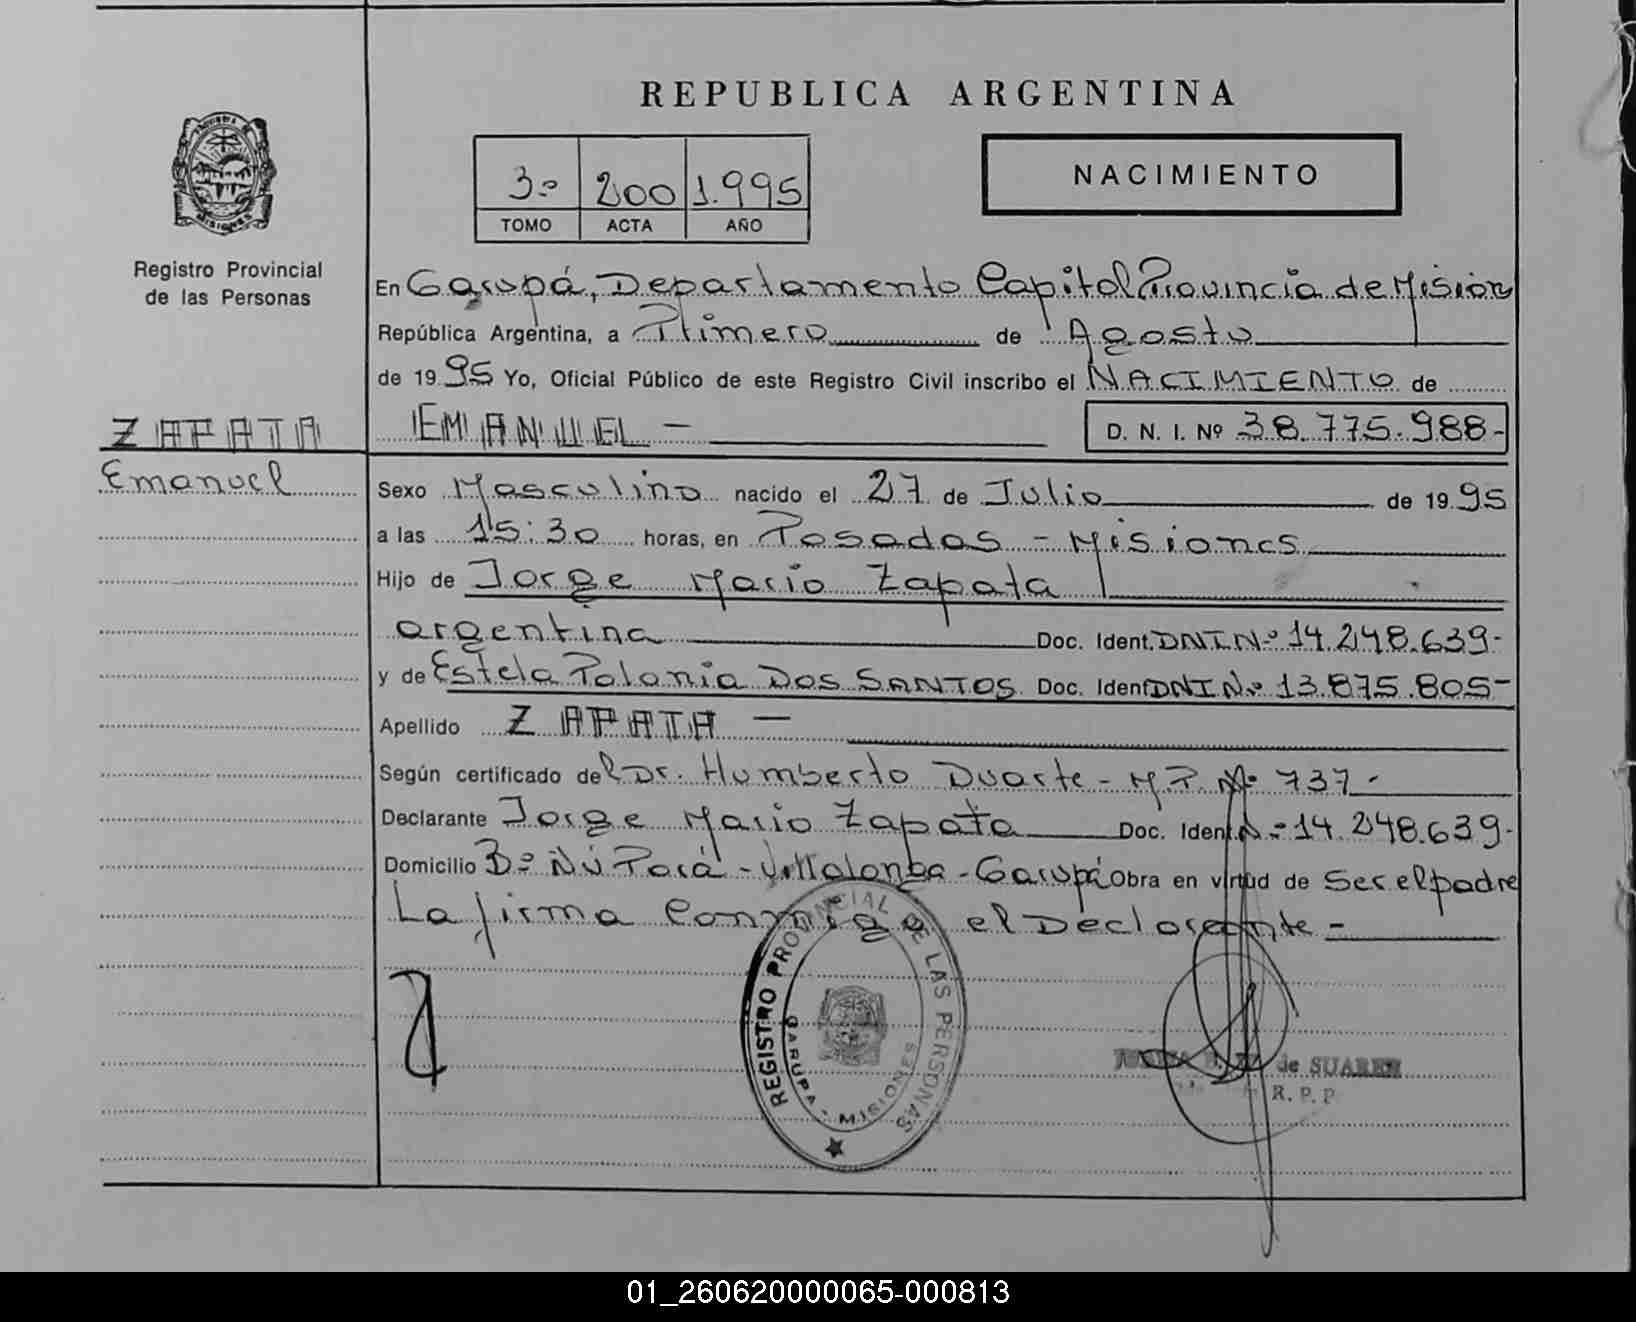 REPUBLICA ARGENTINA
3º 200 1.995
TOMO ACTA AÑO
NACIMIENTO
MISIONES
Registro Provincial
de las Personas
En Garupá, Departamento Capital Provincia de Mision
República Argentina, a Primero de Agosto
de 1995 Yo, Oficial Público de este Registro Civil inscribo el NACIMIENTO de
ZAPATA
Emanuel
EMANUEL - D. N. I. Nº 38.775.988-
Sexo Masculino nacido el 27 de Julio de 1995
a las 15:30 horas, en Posadas - Misiones
Hijo de Jorge Mario Zapata
argentina Doc. Ident. DNI Nº 14.248.639-
y de Estela Polonia Dos SANTOS Doc. Ident DNI Nº 13.875.805-
Apellido ZAPATA -
Según certificado del Dr. Humberto Duarte - M.P. Nº 737-
Declarante Jorge Mario Zapata Doc. Ident. Nº 14.248.639-
Domicilio Bº Ñú Porá - Villalonga - Garupá Obra en virtud de Ser el padre
La firma Conmigo el Declarante -
REGISTRO PROVINCIAL DE LAS PERSONAS
GARUPA - MISIONES
de SUAREZ
R. P. P
01_260620000065-000813